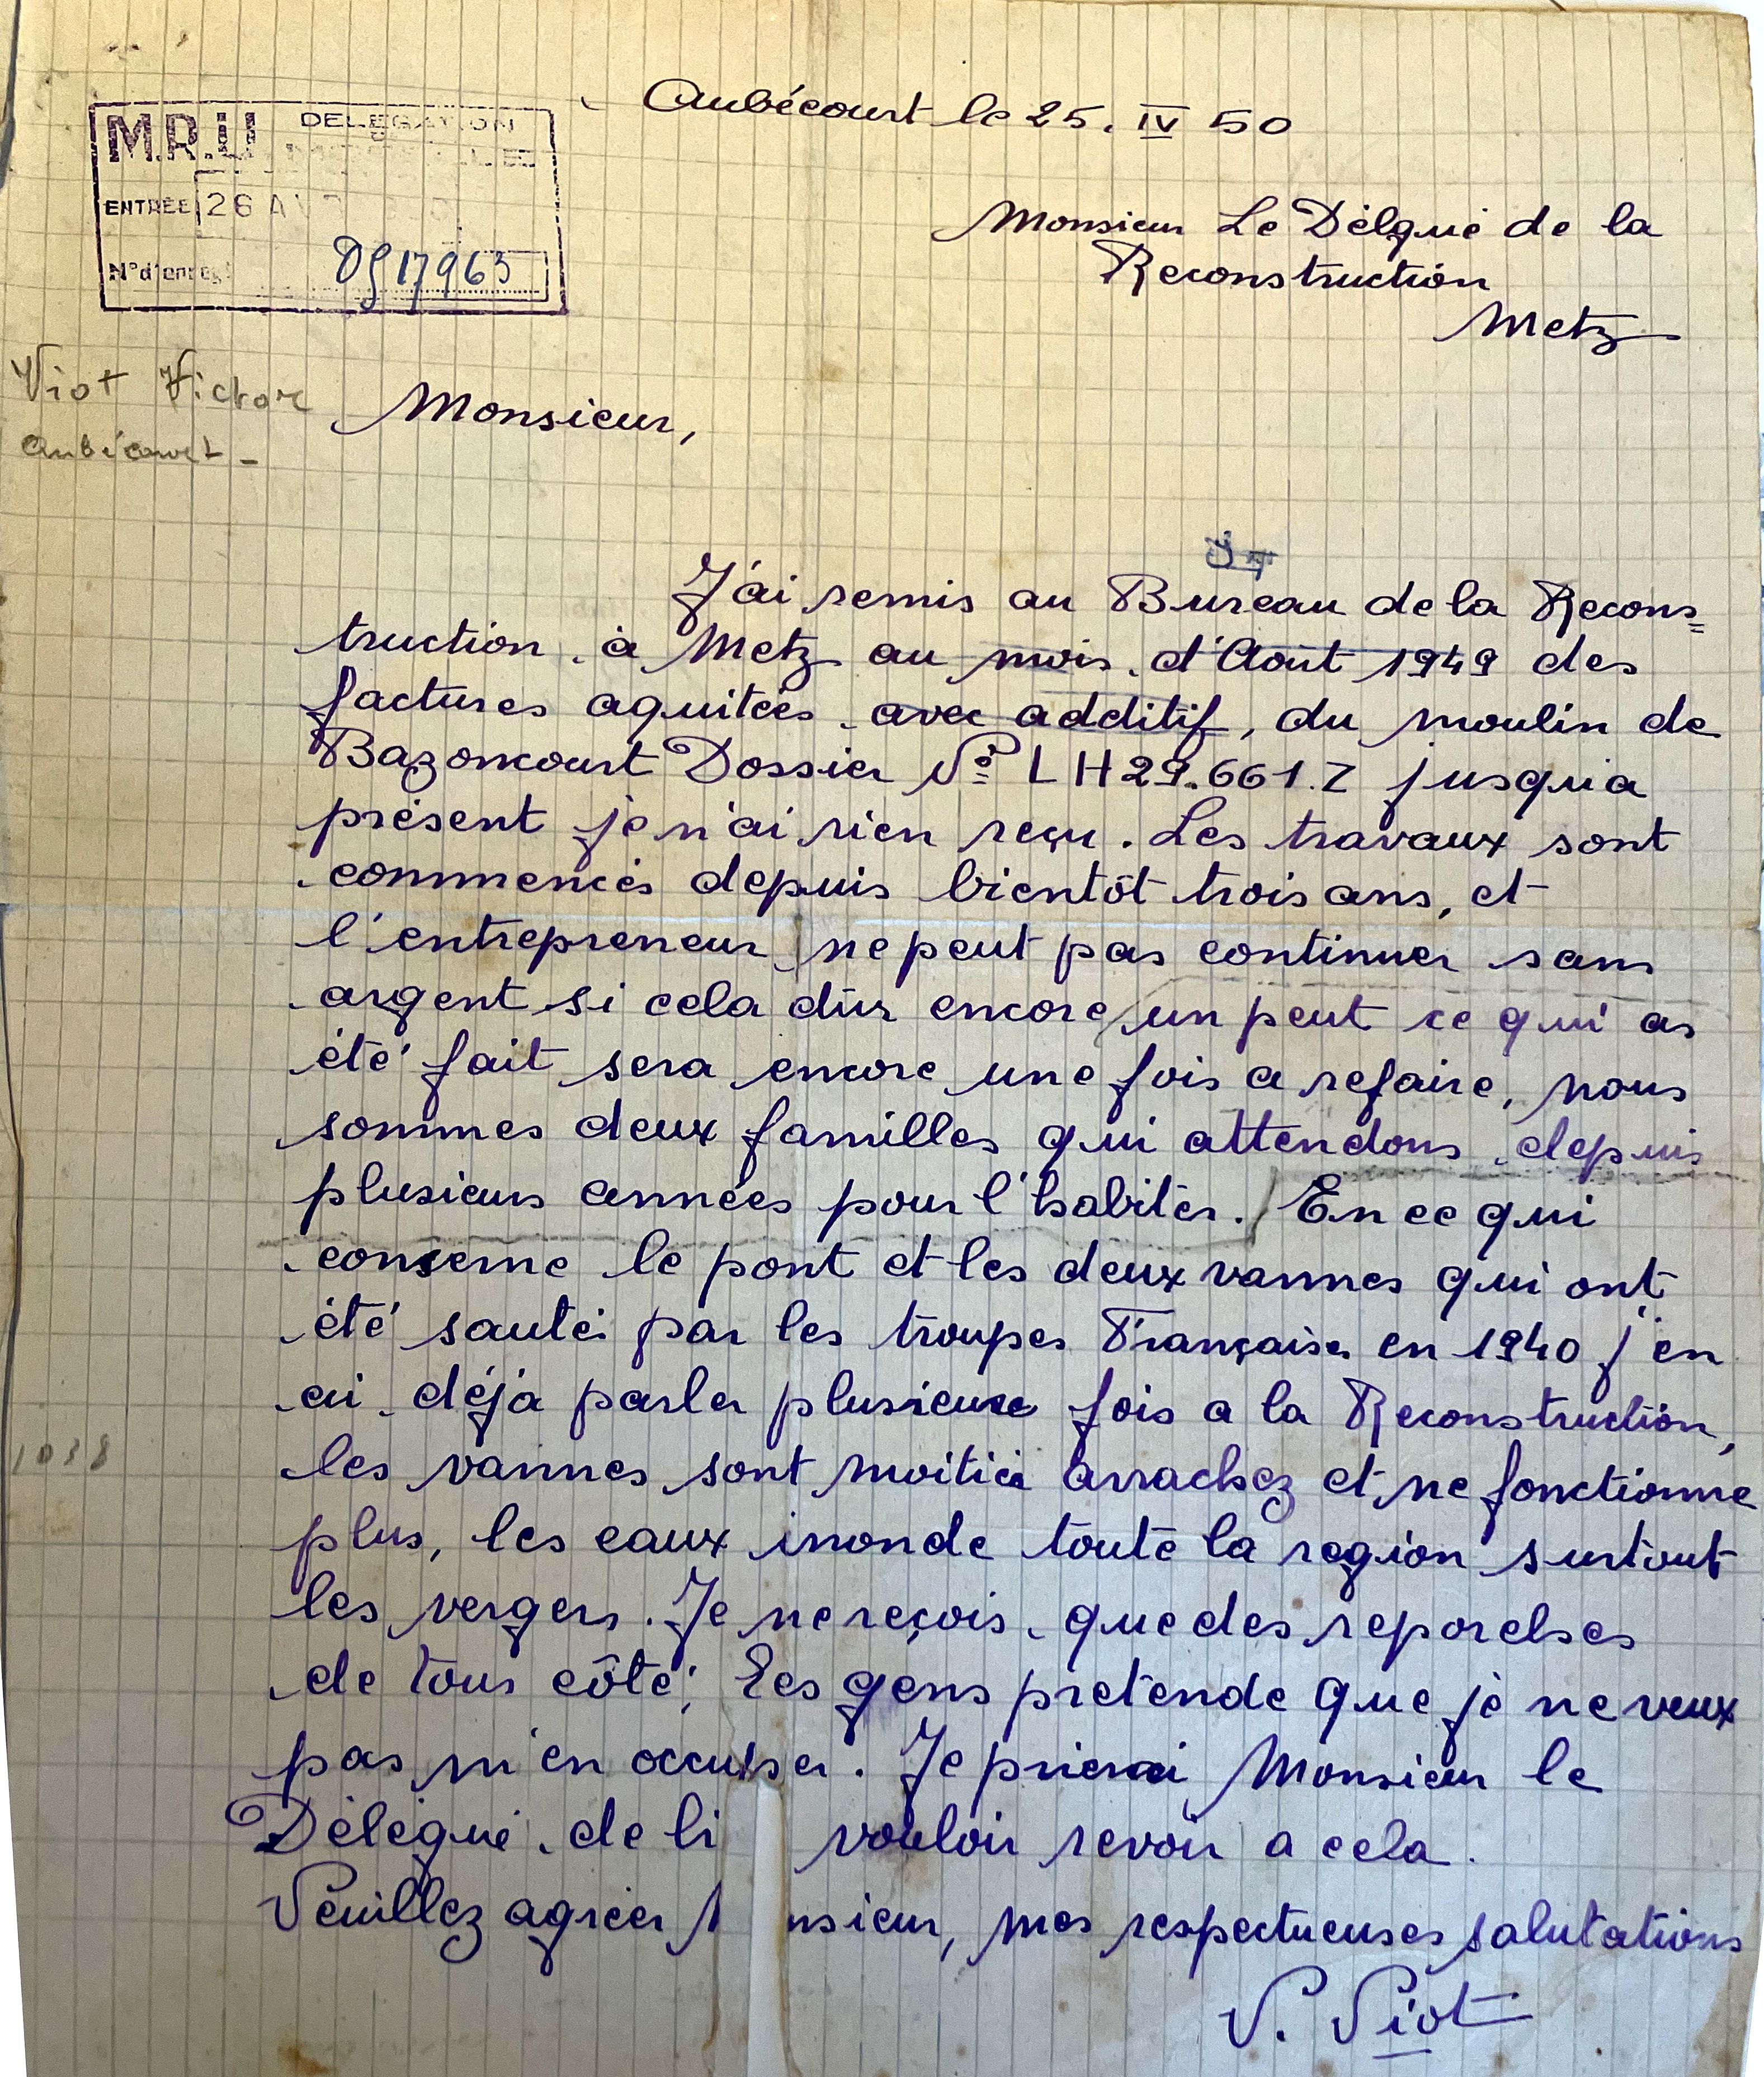 Aubécourt le 25. IV 50
M.R.U DELEGATION
ENTRÉE 26 AV
N° d'enreg!
0517963
Monsieur Le Délgué de la
Reconstruction
Metz
Viot Victor
Aubécourt -
Monsieur,
J'ai remis au Bureau de la Recons=
truction à Metz au mois d'Août 1949 des
factures aquitées avec additif, du moulin de
Bazoncourt Dossier N° LH29.661.Z jusqu'a
présent je n'ai rien reçu. Les travaux sont
commencés depuis bientôt trois ans, et
l'entrepreneur ne peut pas continuer sans
argent si cela dûr encore un peut ce qui as
été fait sera encore une fois a refaire, nous
sommes deux familles qui attendons depuis
plusieurs années pour l'habiter. En ce qui
conserne le pont et les deux vannes qui ont
été sauté par les troupes Française en 1940 j'en
ai déjà parler plusieurs fois a la Reconstruction,
les vannes sont moitiée arrachez et ne fonctionne
plus, les eaux inonde toute la region surtout
les vergers. Je ne reçois que des reporches
de tous côté; Les gens pretende que je ne veux
pas m'en occuper. Je prierai Monsieur le
Délégué de bi vouloir revoir a cela.
Veuillez agréer M nsieur, mes respectueuses salutations
V. Viot
1038